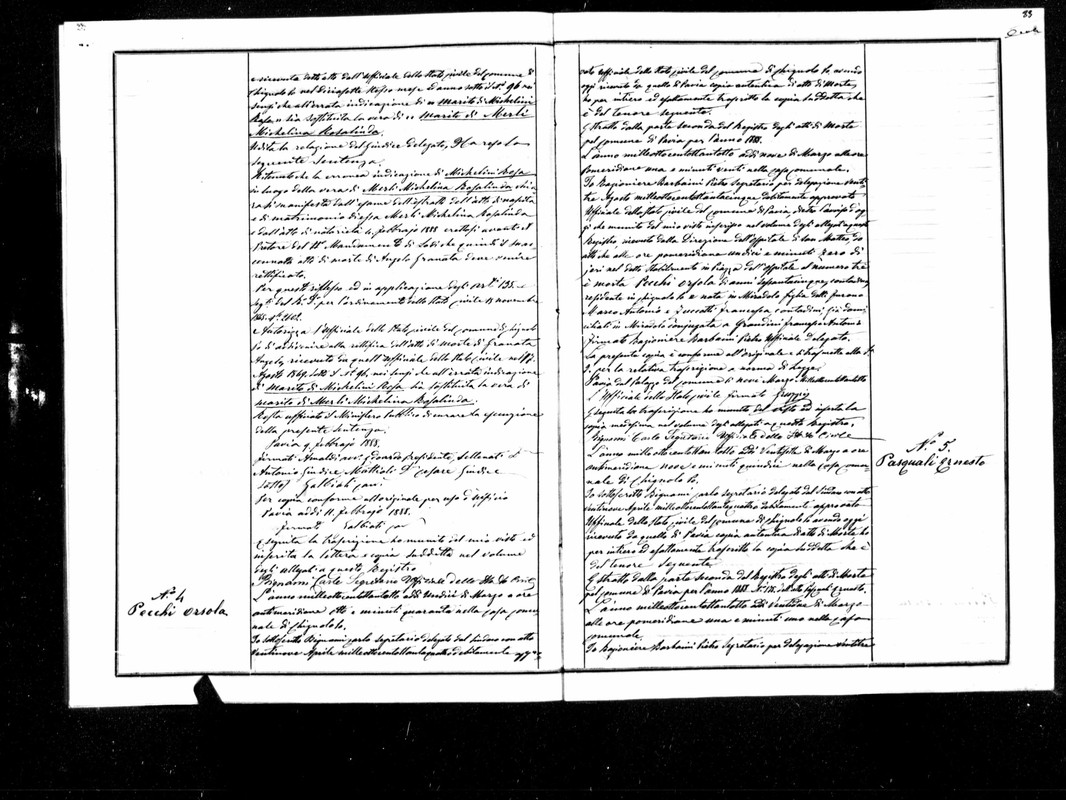 e ricevuta dett'atto dall'Uffiziale dello Stato Civile del Comune di
Chignolo Po nel diciasette stesso mese ed anno sotto il N.° 96 nei
sensi che all'errata indicazione di "marito di Michelini
Rosa" sia sostituita la vera di "marito di Merli
Michelina Rosalinda.
Udita la relazione del Giudice Delegato, Ha reso la
seguente Sentenza.
Ritenuto che la erronea indicazione di Michelini Rosa
in luogo della vera di Merli Michelina Rosalinda chia
ra si manifesta dall'esame dell'estratto dell'atto di nascita
e di matrimonio di essa Merli Michelina Rosalinda
e dall'atto di notorietà 4 febbrajo 1888 erettosi avanti il
Pretore del II° Mandamento di Lodi che quindi il sur
cennato atto di morte di Angelo Granata deve venire
rettificato.
Per questi riflessi ed in applicazione degli art.i 133 e
seg.ti del R. D.° per l'ordinamento dello Stato Civile 15 novembre
1865 N.° 2602.
Autorizza l'Uffiziale dello Stato Civile del Comune di Chignolo
Po di addivenire alla rettifica dell'atto di morte di Granata
Angelo, ricevuto in quell'Uffiziale dello Stato Civile nel 17
Agosto 1869 sotto il N.° 96, nei sensi che all'errata indicazione
di marito di Michelini Rosa sia sostituita la vera di
marito di Merli Michelina Rosalinda.
Resta ufficiato il Ministero Pubblico di curare la esecuzione
della presente Sentenza.
Pavia 9 febbrajo 1888.
firmati Arnaldi avv. Edoardo presidente, Sellenati D.r
Antonio Giudice Mattioli D.r Cesare Giudice
Sottos.° Galbiati Canc.
Per copia conforme all'originale per uso d'Ufficio
Pavia addì 11 febbrajo 1888.
firmat° Galbiati
Eseguita la trascrizione ho munito del mio visto ed
inserita la lettera e copia suddetta nel volume
degli allegati a questo Registro
Bignami Carlo Segretario Uffiziale dello Sta.to Civile
N.° 4
Pecchi Orsola
L'anno milleottocentottantotto addì Undici di Marzo a ore
antimeridiane otto e minuti quaranta nella Casa Comu
nale di Chignolo Po.
Io sottoscritto Bignami Carlo Segretario delegato dal Sindaco con atto
ventinove Aprile milleottocentottantaquattro debitamente appro
33
vato Uffiziale dello Stato Civile del Comune di Chignolo Po, avendo
oggi ricevuto da quello di Pavia copia autentica di atto di Morte,
ho per intiero ed esattamente trascritto la copia suddetta che
è del tenore seguente.
Estratto dalla parte seconda del Registro degli atti di Morte
pel Comune di Pavia per l'anno 1888.
L'anno milleottocentottantotto addì nove di Marzo alle ore
pomeridiane una e minuti venti nella Casa Comunale.
Io Ragioniere Barbaini Pietro Segretario per delegazione venti
tre Agosto milleottocentottantacinque debitamente approvata
Uffiziale dello Stato Civile del Comune di Pavia, dietro l'avviso d'og
gi che munito del mio visto inserisco nel volume degli allegati a questo
Registro, ricevuto dalla Direzione dell'ospitale di San Matteo, do
atto che alle ore pomeridiane undici e minuti zero di
jeri nel detto Stabilimento in Piazza dell'Ospitale al numero tre
è morta Pecchi Orsola di anni sessantacinque, contadina
residente in Chignolo e nata in Miradolo figlia delli furono
Marco Antonio e Zuccotti Francesca, contadini già domi
ciliati in Miradolo coniugata a Grandini Francesco Antonio
firmato Ragioniere Barbaini Pietro Uffiziale Delegato.
La presente copia è conforme all'originale e si trasmette alla S.
V. per la relativa trascrizione a norma di Legge.
Pavia dal Palazzo del Comune li nove Marzo Milleottocentottantotto
L'Uffiziale dello Stato Civile firmato
Eseguita la trascrizione ho munito del visto ed inserta la
copia medesima nel volume degli allegati a questo Registro.
Bignami Carlo Segretario Uffiziale dello Sta.to Civile
N.° 5.
Pasquali Ernesto
L'anno milleottocentottantotto addì Ventisette di Marzo a ore
antimeridiane nove e minuti quindici nella Casa Comu
nale di Chignolo Po.
Io sottoscritto Bignami Carlo Segretario delegato dal Sindaco con atto
ventinove Aprile milleottocentottantaquattro debitamente approvato
Uffiziale dello Stato Civile del Comune di Chignolo Po avendo oggi
ricevuto da quello di Pavia copia autentica di atto di Morte ho
per intiero ed esattamente trascritto la copia suddetta che è
del tenore seguente
Estratto dalla parte seconda del Registro degli atti di Morte
pel Comune di Pavia per l'anno 1888. Pasquali Ernesto.
L'anno milleottocentottantotto addì Ventidue di Marzo
alle ore pomeridiane una e minuti uno nella Casa
Comunale.
Io Ragioniere Barbaini Pietro Segretario per delegazione ventitre